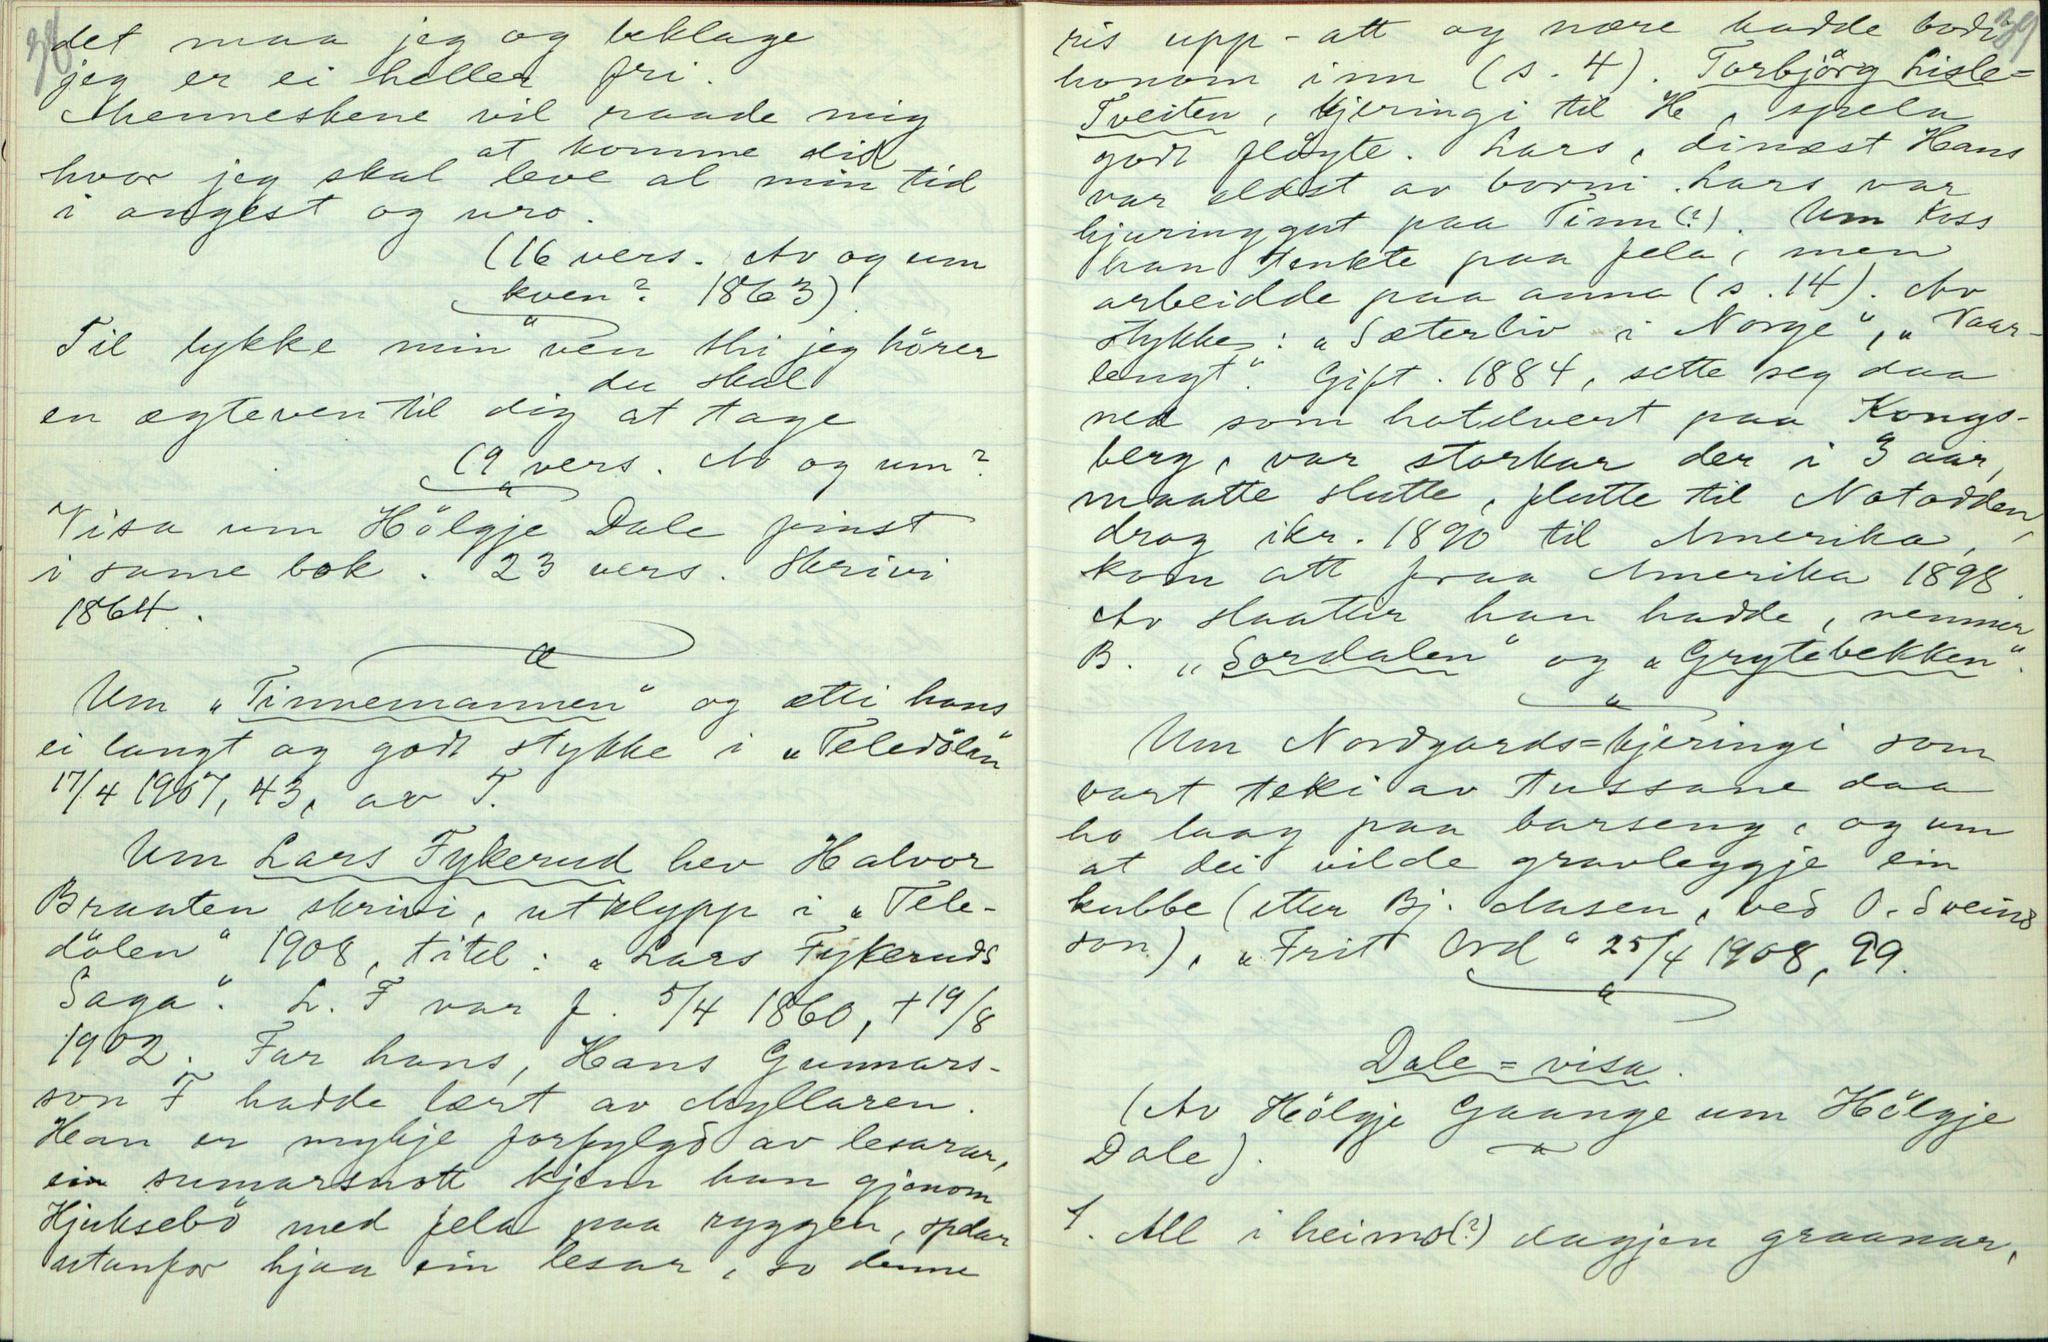 38
det maa jeg og beklage
jeg er ei heller fri.
Menneskene vil raade mig
at komme did
hvor jeg skal leve al min tid
i angest og uro.
(16 vers. Av og um
kven? 1863)
Til lykke min ven thi jeg hörer
du skal
en ægteven til dig at tage
(9 vers. Av og um?
Visa um Hölgje Dale finst
i same bok. 23 vers. Skrivi
1864.
Um „Tinnemannen“ og ætti hans
ei langt og godt stykke i „Teledölen“
17/4 1907, 43, av T.
Um Lars Fykerud hev Halvor
Braaten skrivi, utklypp i „Tele-
dölen“ 1908, titel: „Lars Fykeruds
Saga“. L. F var f. 5/4 1860, + 19/8
1902. Far hans, Hans Gunnars-
son F hadde lært av Myllaren.
Han er mykje forfylgd av lesarar,
ein sumarsnott kjem han gjenom
Hjuksebö med fela paa ryggen, spelar
utanfor hjaa ein lesar, so denne
39
ris upp-att og nære hadde bodi
honom inn (s. 4). Torbjörg Lisle=
Tveiten, kjeringi til H, spela
godt flöyte. Lars, dinæst Hans
var eldst av borni. Lars var
hjuringgut paa Tinn(?). Um Koss
han tenkte paa fela, men
arbeidde paa anna (s. 14). Av
stykke: „Sæterliv i Norge“, „Vaar-
lengt“. Gift. 1884, sette seg daa
ned som hotelvert paa Kongs-
berg, var storkar der i 3 aar,
maatte slutte, flutte til Notodden,
drog ikr. 1890 til Amerika,
kom att fraa Amerika 1898.
Av slaattir han hadde, nemner
B. „Sordalen“ og „Grytebekken“.
Um Nordgards=kjeringi som
vart teki av tussane daa
ho laag paa barseng, og um
at dei vilde gravleggje ein
kubbe (etter Bj. Aasen, ved O. Sveins
son), „Frit Ord“ 25/4 1908, 99.
Dale=visa.
(Av Hölgje Gaange um Hölgje
Dale).
1. All i heimo(?) dagjen graanar,